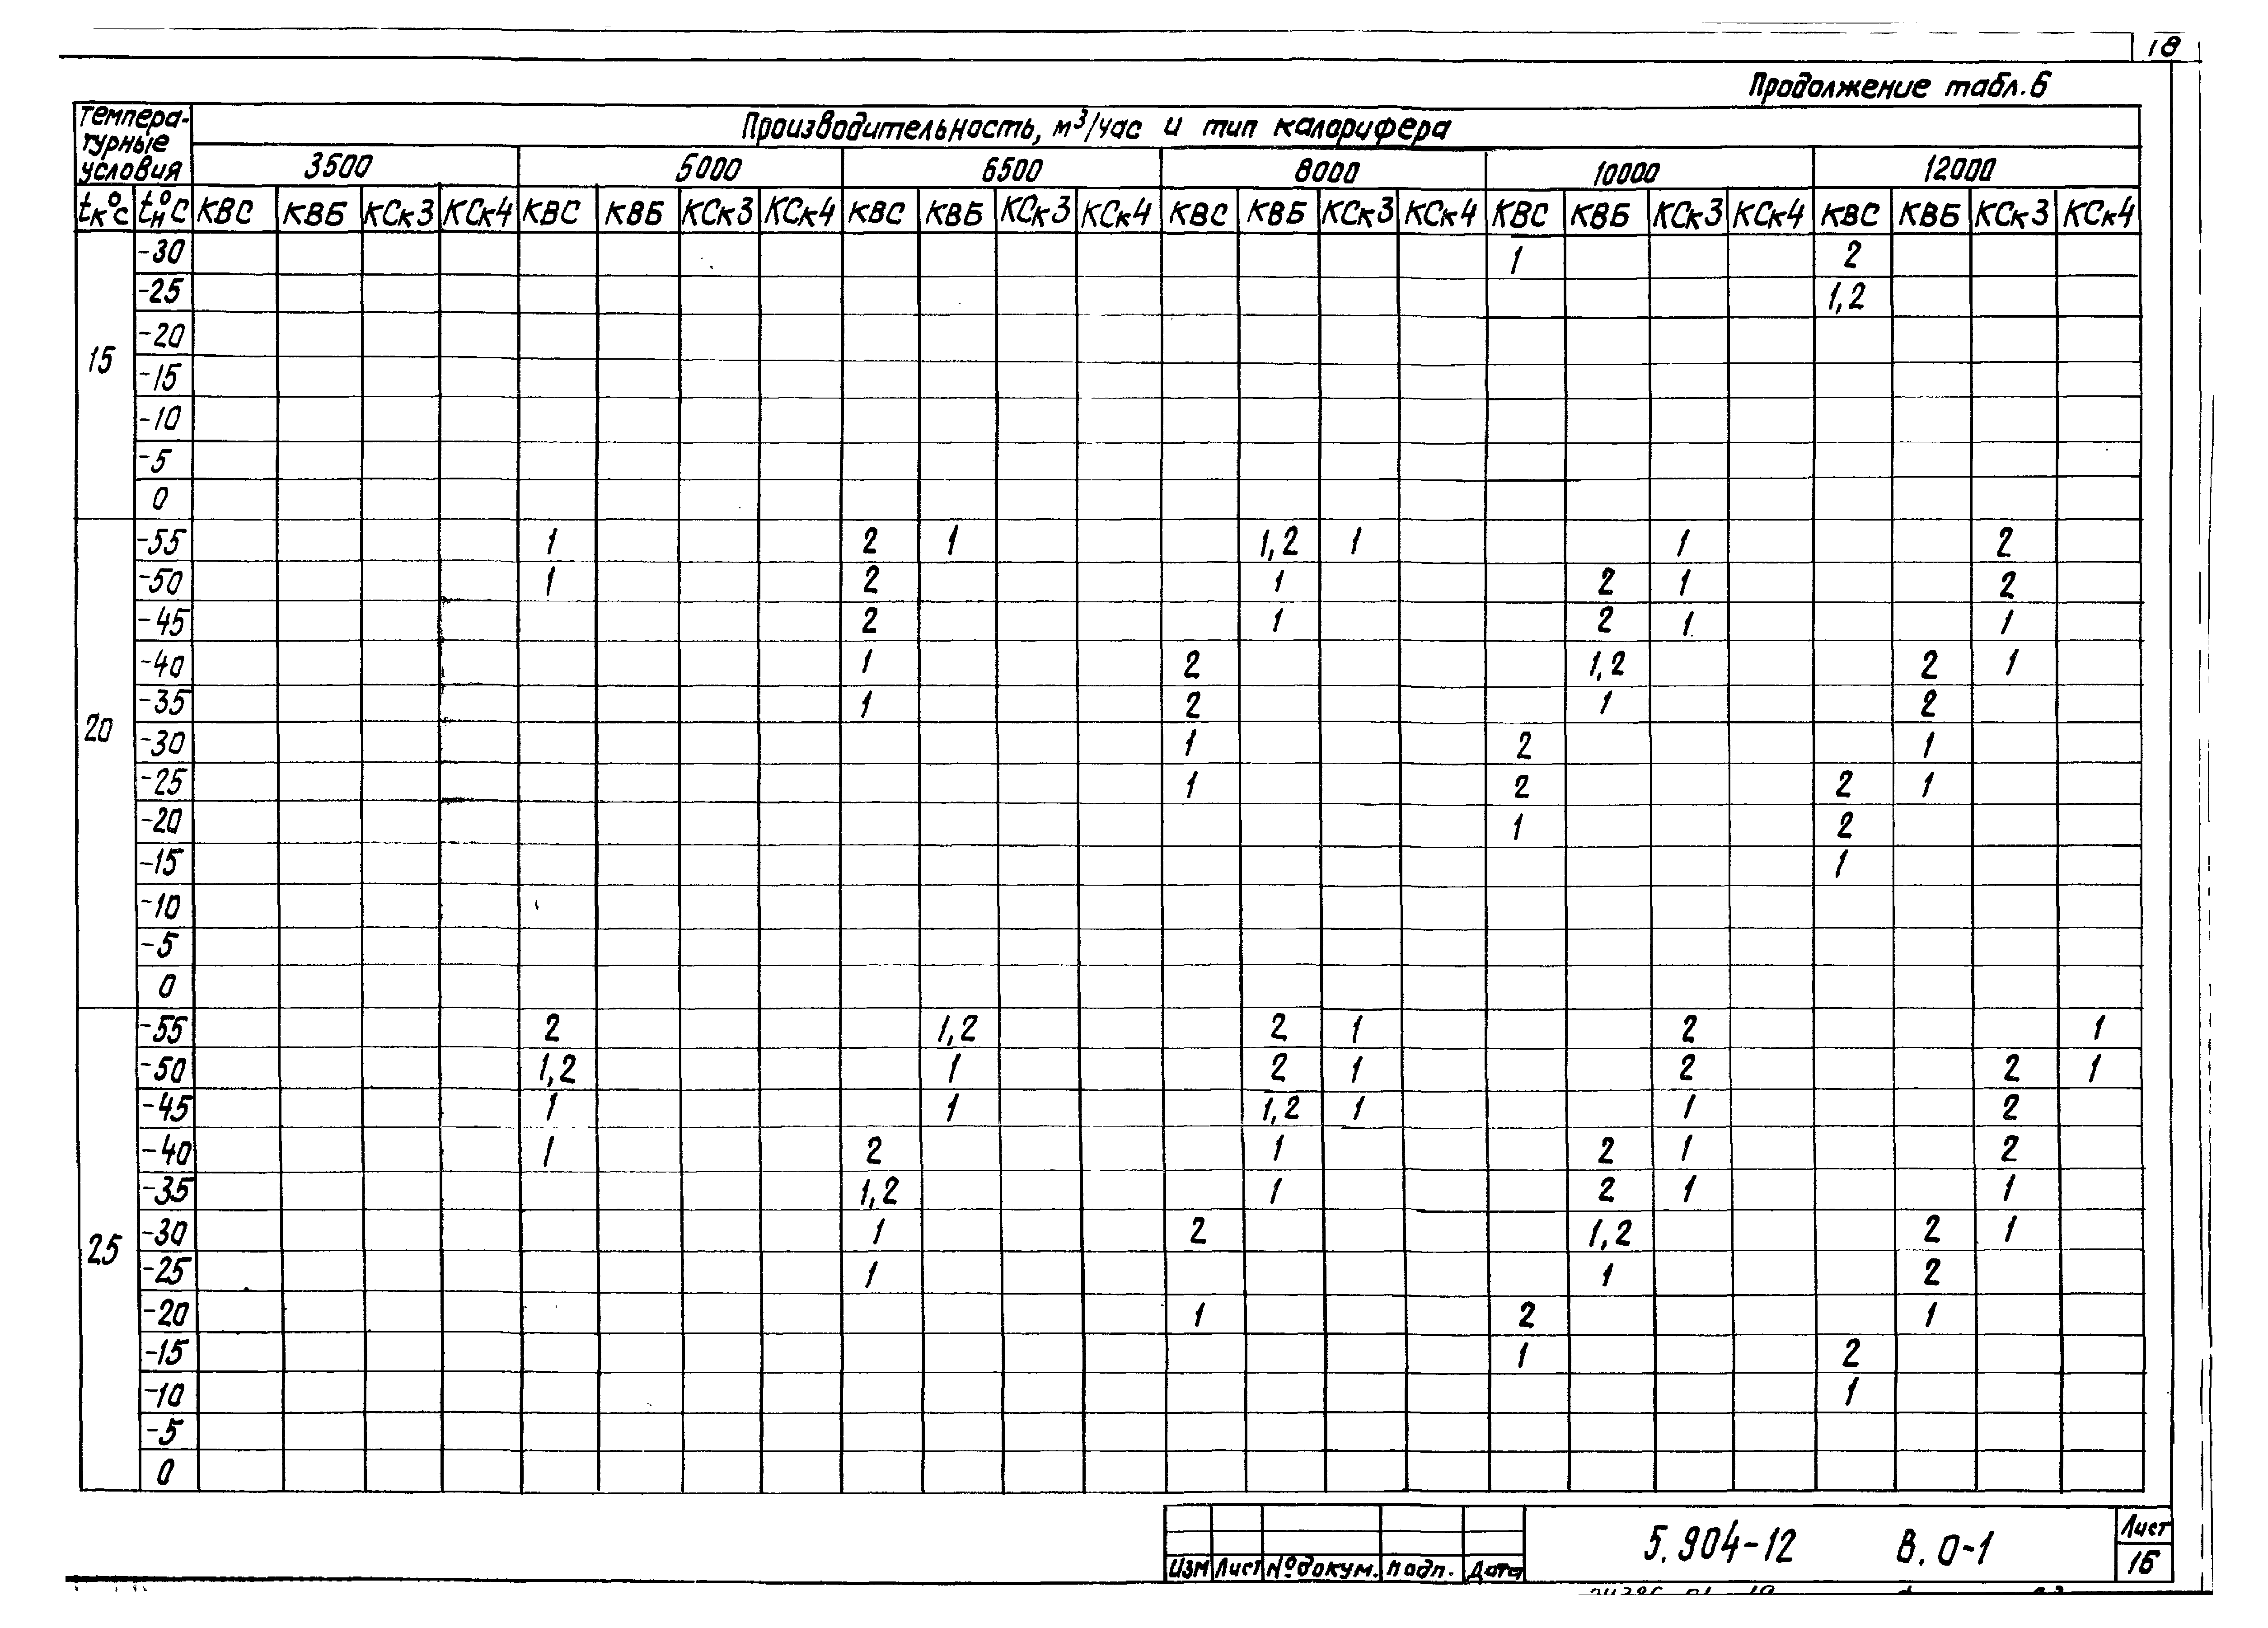 18
Продолжение табл.6
Темпера-
турные
условия
Производительность, м³/час и тип калорифера
3500 5000 6500 8000 10000 12000
tк°C tн°C КВС КВБ КСк3 КСк4 КВС КВБ КСк3 КСк4 КВС КВБ КСк3 КСк4 КВС КВБ КСк3 КСк4 КВС КВБ КСк3 КСк4 КВС КВБ КСк3 КСк4
-30 1 2
-25 1,2
-20
15
-15
-10
-5
0
-55 1 2 1 1,2 1 1 2
-50 1 2 1 2 1 2
-45 2 1 2 1 1
-40 1 2 1,2 2 1
-35 1 2 1 2
20
-30 1 2 1
-25 1 2 2 1
-20 1 2
-15 1
-10
-5
0
-55 2 1,2 2 1 2 1
-50 1,2 1 2 1 2 2 1
-45 1 1 1,2 1 1 2
-40 1 2 1 2 1 2
-35 1,2 1 2 1 1
-30 1 2 1,2 2 1
25
-25 1 1 2
-20 1 2 1
-15 1 2
-10 1
-5
0
5.904-12 В.0-1
Лист
16
Изм Лист №докум. Подп. Дата